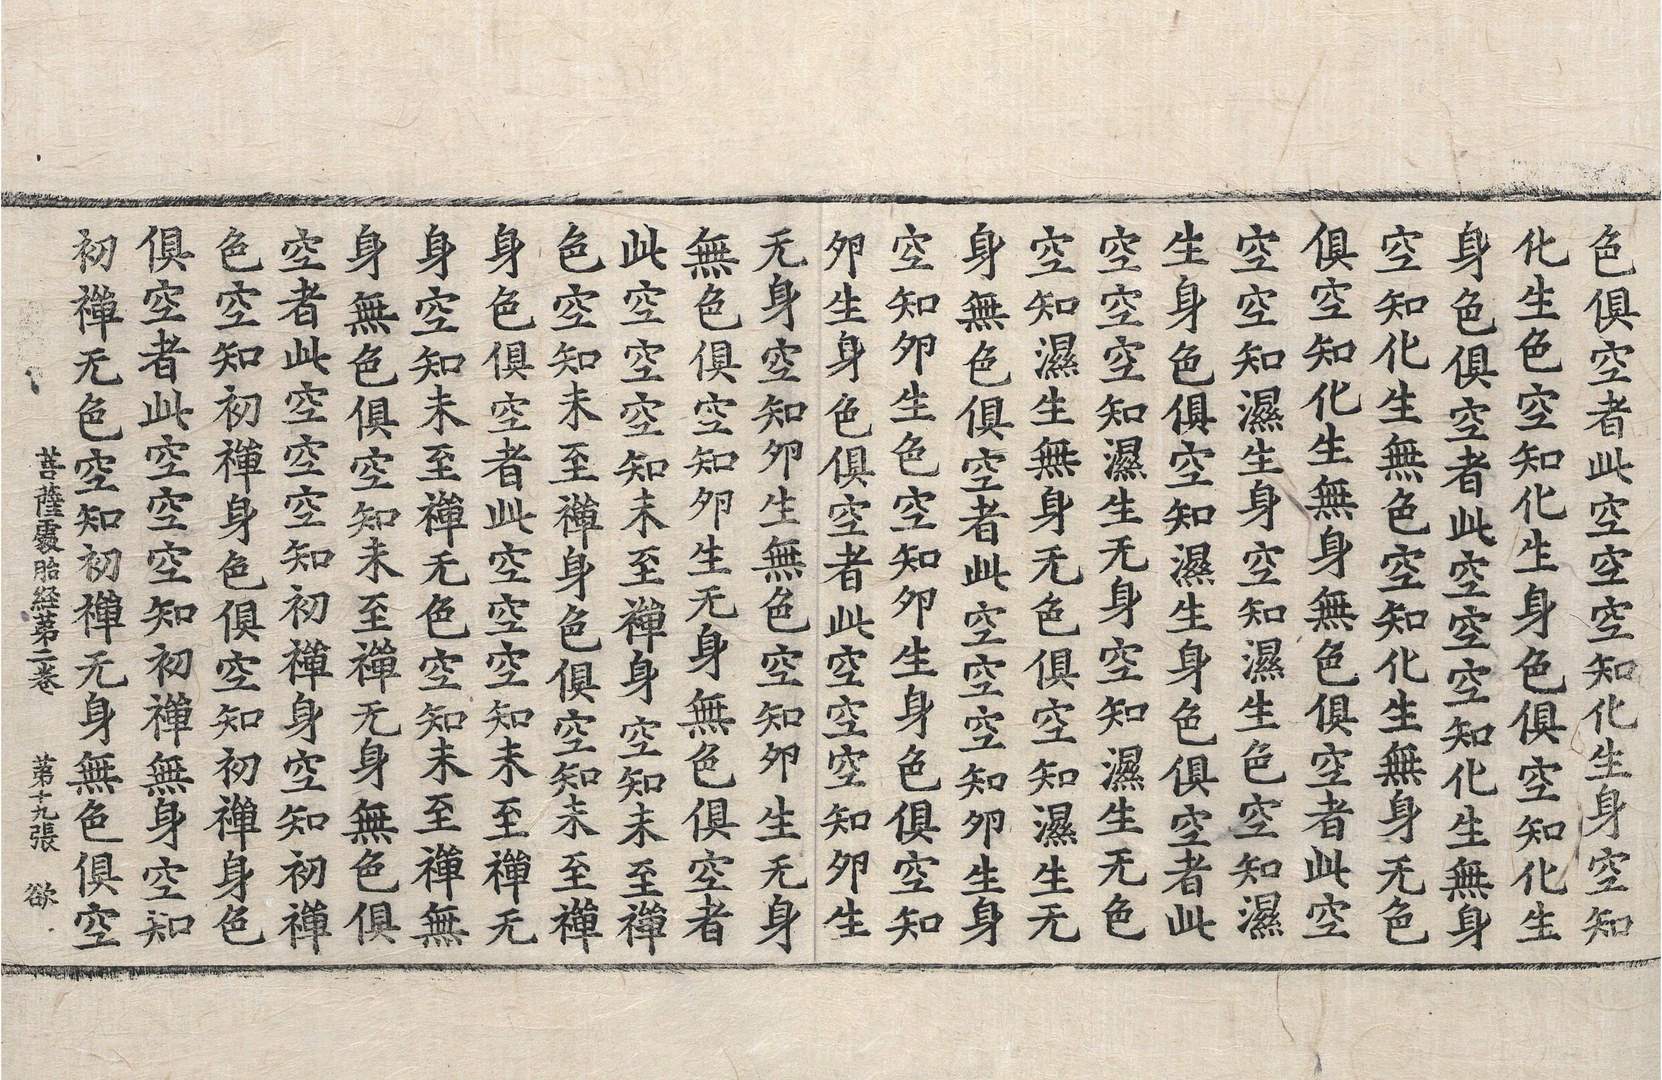 色俱空者此空空空知化生身空知
化生色空知化生身色俱空知化生
身色俱空者此空空空知化生無身
空知化生無色空知化生無身无色
俱空知化生無身無色俱空者此空
空空知濕生身空知濕生色空知濕
生身色俱空知濕生身色俱空者此
空空空知濕生无身空知濕生无色
空知濕生無身无色俱空知濕生无
身無色俱空者此空空空知卵生身
空知卵生色空知卵生身色俱空知
卵生身色俱空者此空空空知卵生
无身空知卵生無色空知卵生无身
無色俱空知卵生无身無色俱空者
此空空空知未至禪身空知未至禪
色空知未至禪身色俱空知未至禪
身色俱空者此空空空知未至禪无
身空知未至禪无色空知未至禪無
身無色俱空知未至禪无身無色俱
空者此空空空知初禪身空知初禪
色空知初禪身色俱空知初禪身色
俱空者此空空空知初禪無身空知
初禪无色空知初禪无身無色俱空
菩薩處胎経苐二卷 苐十九張 欲